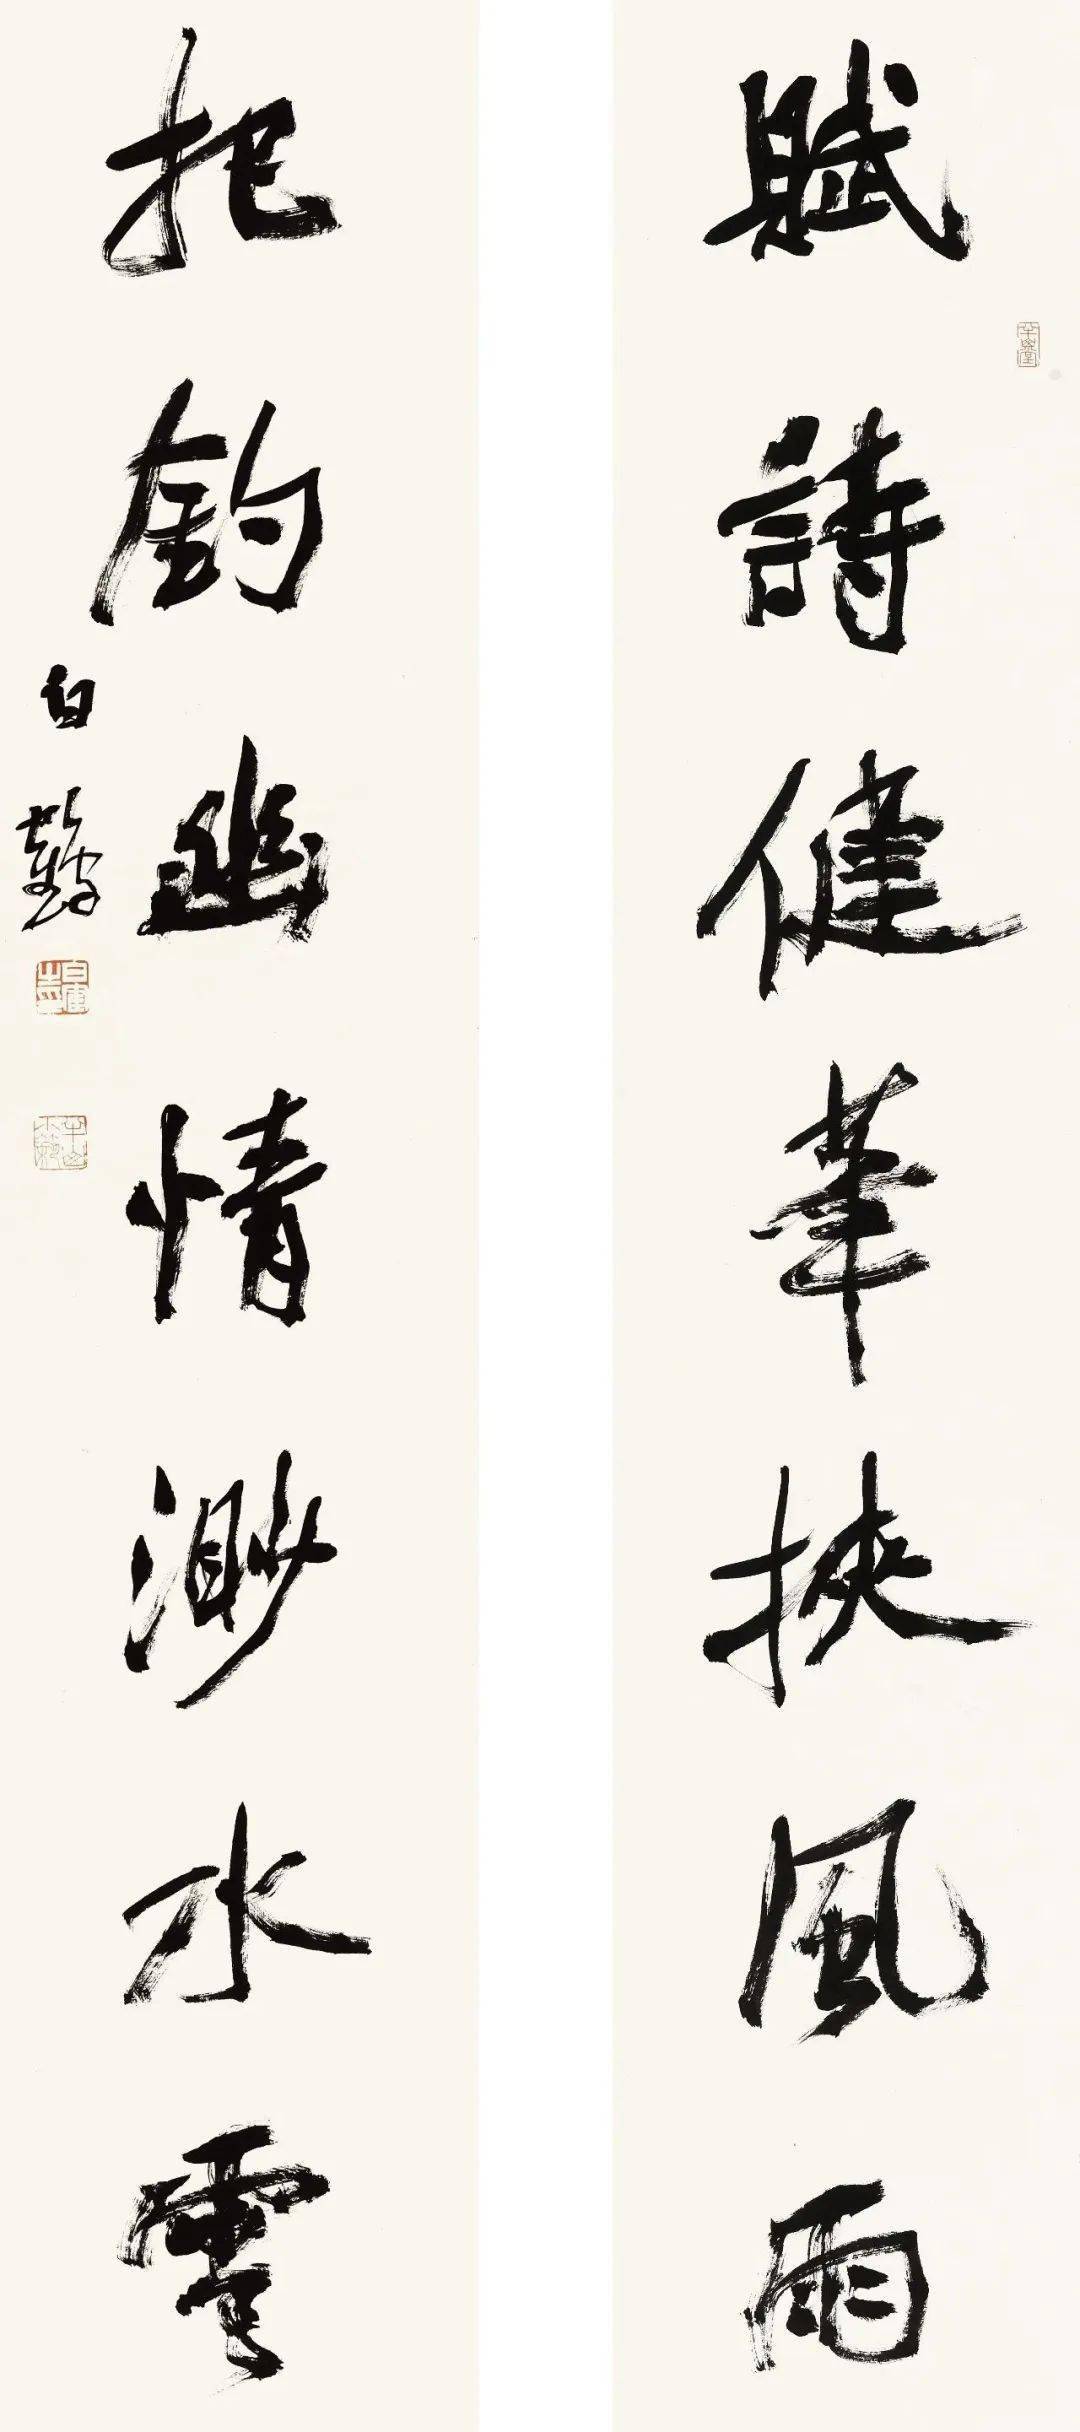 賦詩健筆挾風雨
把釣幽情渺水雲
白